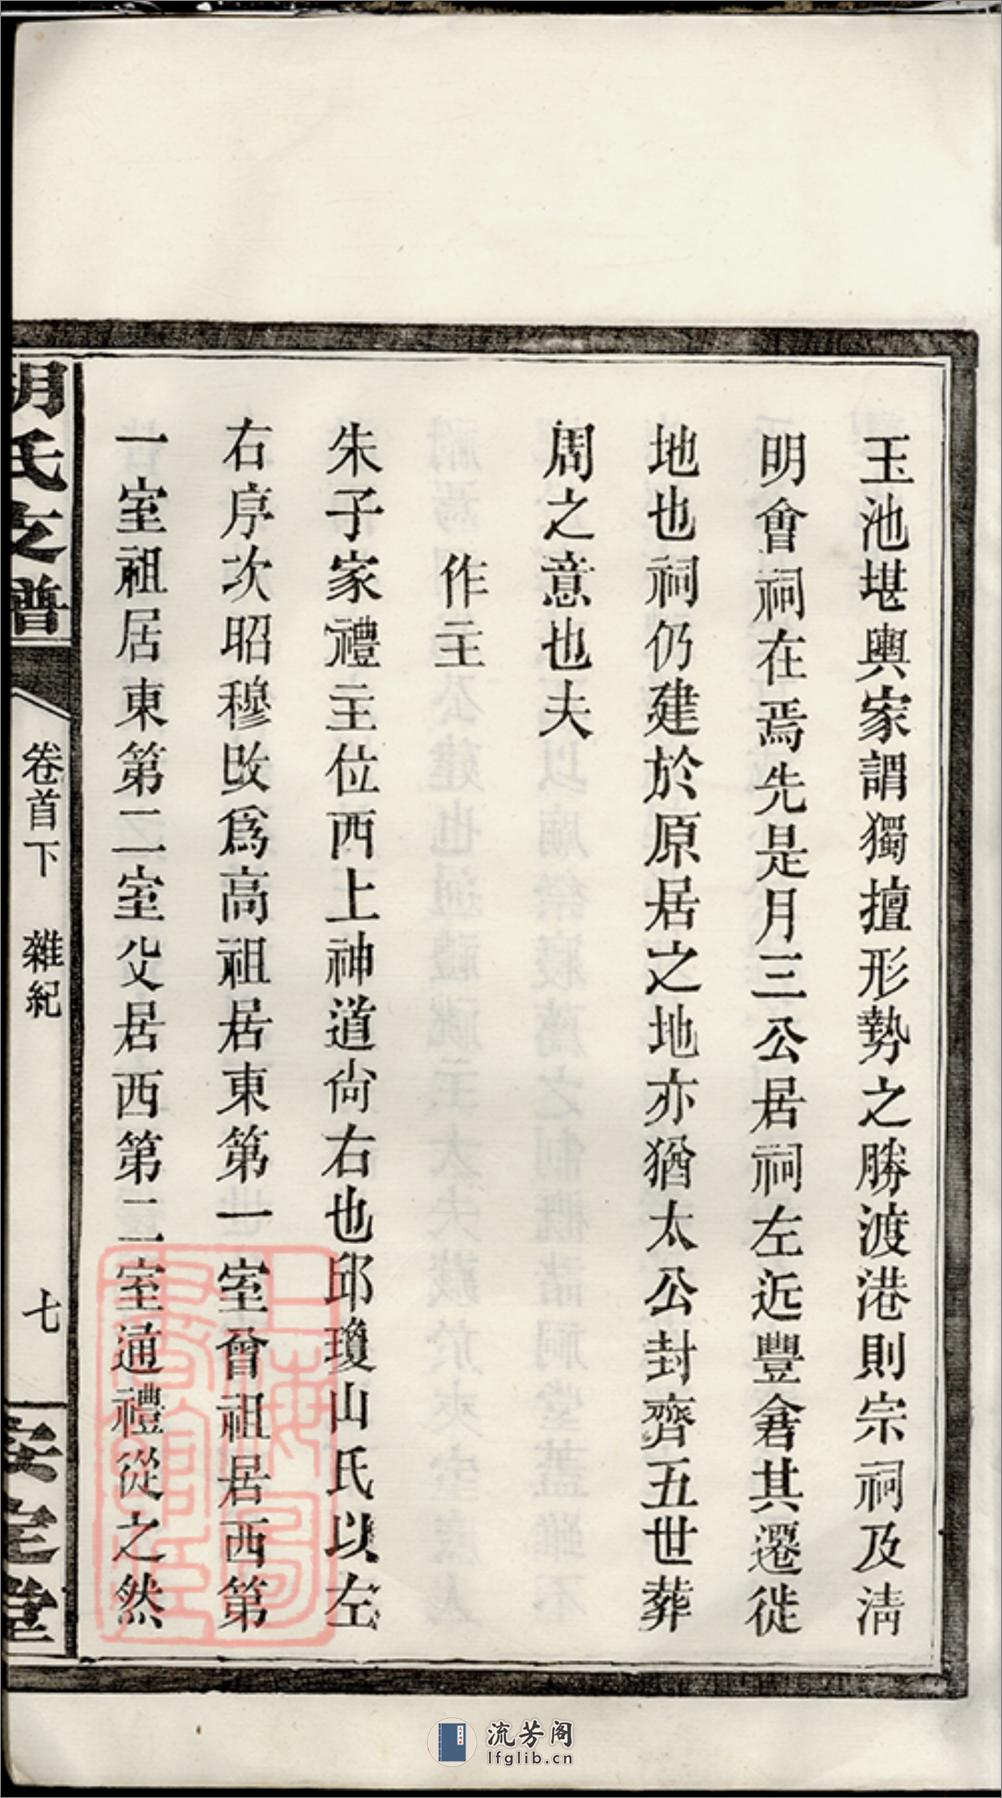 玉池堪輿家謂獨擅形勢之勝渡港則宗祠及清
明會祠在焉先是月三公居祠左近豐倉其遷徙
地也祠仍建於原居之地亦猶太公封齊五世葬
周之意也夫
作主
朱子家禮主位西上神道尙右也邱瓊山氏以左
右序次昭穆改爲高祖居東第一室曾祖居西第
一室祖居東第二室父居西第二室通禮從之然
胡氏支譜
卷首下 雜紀
七
安定堂
上海圖書館藏
流芳阁
lfglib.cn